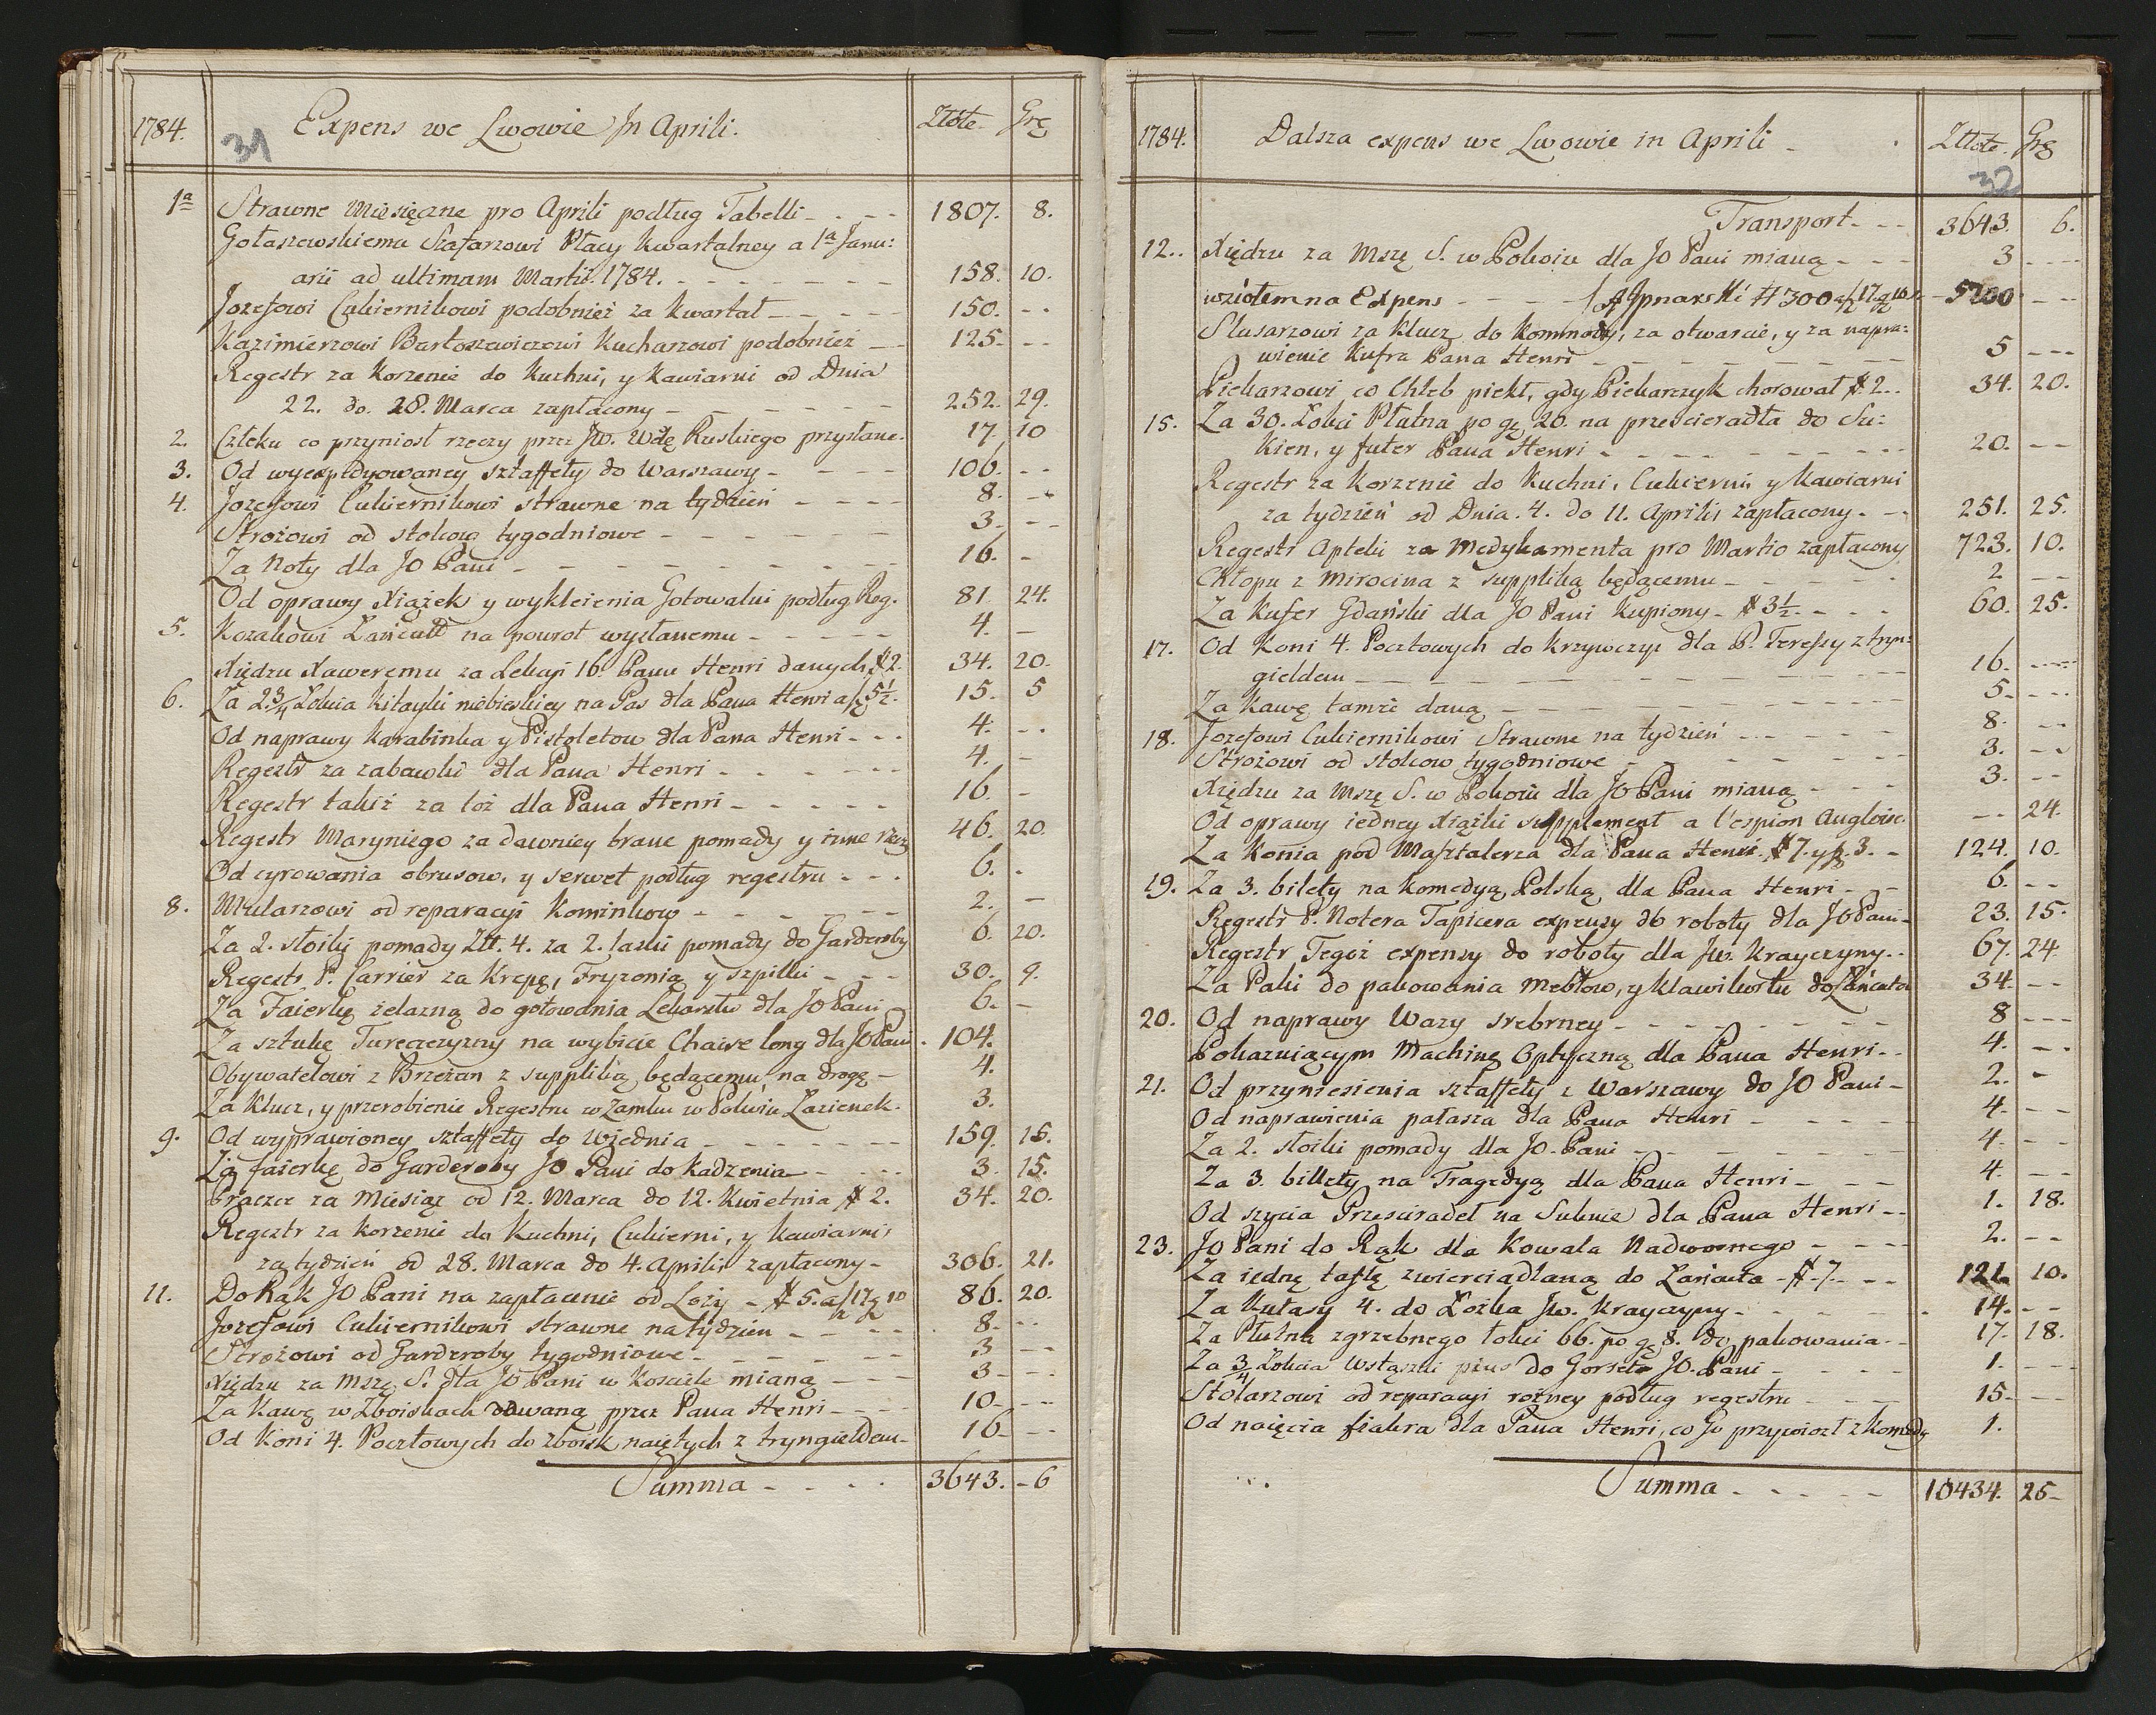 1784. 31 Expens we Lwowie In Aprili. Złłote. Grę
1a Strawne Miesięczne pro Aprili podług Tabelli - - - - 1807. 8.
Gołaszewskiemu Szafarzowi Płacy kwartalney a 1a Janu:
arii ad ultimam Martii. 1784. - - - - - - - - 158. 10.
Jozefowi Cukiernikowi podobnież za kwartał - - - - - 150. - -
Kazimierzowi Bartoszewiczowi Kucharzowi podobnież - - 125. - -
Regestr za korzenie do Kuchni, y Kawiarni od Dnia
22. do. 28. Marca zapłacony - - - - - - 252. 29.
2. Człeku co przyniosł rzeczy przez Jw. Wdę Ruskiego przysłane. 17. 10
3. Od wyexpedyowaney sztaffety do Warszawy - - - - - 106. - -
4. Jozefowi Cukiernikowi strawne na tydzień - - - - 8. - -
Strożowi od stolcow tygodniowe - - - - - - - 3. - -
Za Noty dla JO Pani - - - - - - - - - 16. -
Od oprawy Xiążek y wykleienia Gotowalni podług Reg. 81. 24.
5. Kozakowi Łańcutt na powrot wysłanemu - - - - - 4. -
Xiędzu Xaweremu za Lekcyi 16. Panu Henri danych # 2. 34. 20.
6. Za 2 3/4 Łokcia kitayki niebieskiey na Pas dla Pana Henri a f 5 1/2. 15. 5
Od naprawy Karabinka y Pistoletow dla Pana Henri - - - 4. - -
Regestr za zabawki dla Pana Henri - - - - - - 4. -
Regestr takiż za toż dla Pana Henri - - - - - 16. -
Regestr Maryniego za dawniey brane pomady y inne rzeczy 46. 20.
Od cyrowania obrusow, y serwet podług regestru - - - 6. -
8. Mularzowi od reparacyi Kominkow - - - - - - 2. -
Za 2. słoiki pomady Złł. 4. za 2. laski pomady do Garderoby 6. 20.
Regestr P. Carrier za Krepę, Fryzonią y szpilki - - - 30. 9.
Za Faierkę żelazną do gotowania Lekarstw dla JO Pani 6. -
Za sztukę Tureczczyzny na wybicie Chaise long dla JO Pani - 104.
Obywatelowi z Brzeżan z suppliką będącemu, na drogę - 4.
Za Klucz, y przerobienie Regestru w Zamku w Pokoiu Łazienek. 3.
9. Od wyprawioney sztaffety do Wiednia - - - - - - - 159. 15.
Za faierkę do Garderoby JO Pani do kadzenia - - - - 3. 15.
Praczce za Miesiąc od 12. Marca do 12. Kwietnia # 2. 34. 20.
Regestr za korzenie do Kuchni, Cukierni, y Kawiarni,
za tydzień od 28. Marca do 4. Aprilis zapłacony - 306. 21.
11. Do Rąk JO Pani na zapłacenie od Loży - # 5. a f 17 g 10 86. 20.
Jozefowi Cukiernikowi strawne na tydzien - - - - 8. - -
Strożowi od Garderoby tygodniowe - - - - - - 3 - -
Xiędzu za Mszę S. dla JO Pani w Kosciele mianą - - - 3 - -
Za Kawę w Zboiskach dawaną przez Pana Henri - - - - 10. - -
Od Koni 4. Pocztowych do Zboisk naiętych z tryngieldem - 16 - -
Summa - - - - 3643. - 6
1784. Dalsza expens we Lwowie in Aprili - Złłote. Grę
32
Transport - - - 3643. 6.
12. Xiędzu za Mszę S. w Pokoiu dla JO Pani mianą - - - 3 - - -
wziołem na Expens - - - - # 300 a f 17 g 10 - 5200 - - -
Slusarzowi za klucz do kommody, za otwarcie, y za napra:
wienie kufra Pana Henri - - - - - - - 5 - - -
Piekarzowi, co Chleb piekł, gdy Piekarczyk chorował # 2.. 34. 20.
15. Za 30. Łokci Płutna po gę 20. na przescieradła do Su:
kien, y futer Pana Henri - - - - - - - - 20. - -
Regestr za Korzenie do Kuchni, Cukierni, y Kawiarni
za tydzień od Dnia. 4. do 11. Aprilis zapłacony - - - 251. 25.
Regestr Apteki za Medykamenta pro Martio zapłacony 723. 10.
Chłopu z Mirocina z suppliką będącemu - - - - - 2 - -
Za Kufer Gdański dla JO Pani Kupiony - # 3 1/2. - - - 60. 25.
17. Od Koni 4. Pocztowych do Krzywczyc dla P. Teressy z tryn:
gieldem - - - - - - - - - - 16. - - -
Za Kawę tamże daną - - - - - - - - 5. - - -
18. Jozefowi Cukiernikowi Strawne na tydzień - - - - - 8. - -
Strożowi od stolcow tygodniowe - - - - - - 3. - -
Xiędzu za Mszę S. w Pokoiu dla JO Pani mianą - - - 3. - -
Od oprawy iedney Xiążki supplement a l'espion Angloise. - - 24.
Za Konia pod Masztalerza dla Pana Henri. # 7. y f 3. - 124. 10.
19. Za 3. bilety na Komedyą Polską dla Pana Henri - - 6. - -
Regestr P. Notera Tapicera expensy do roboty dla JO Pani - 23. 15.
Regestr Tegoż expensy do roboty dla Jw. Krayczyny. . 67. 24.
Za Paki do pakowania Meblow, y klawikortu do Łańcuta 34. - -
20. Od naprawy Wazy srebrney - - - - - - - 8 - - -
Pokazuiącym Machinę Optyczną dla Pana Henri. . 4. - -
21. Od przyniesienia sztaffety z Warszawy do JO Pani - 2. -
Od naprawienia pałasza dla Pana Henri - - - - - 4. - -
Za 2. słoiki pomady dla JO. Pani - - - - - - 4. - -
Za 3. billety na Tragedyą dla Pana Henri - - - 4. - -
Od szycia Przescieradeł na Suknie dla Pana Henri - - 1. 18.
23. JO Pani do Rąk dla Kowala Nadwornego - - - - 2. - -
Za iednę taflę zwierciadlaną do Łańcuta - # . 7. - - - 121. 10.
Za Kutasy 4. do Łożka Jw. Krayczyny - - - - - 14. - -
Za Płutna zgrzebnego łokci 66. po gę 8. do pakowania - - 17. 18.
Za 3/4 Łokcia Wstążki do Gorseta JO. Pani - - - - 1. - - -
Stolarzowi od reparacyi rożney podług regestru - - - 15. - -
Od naięcia fiakra dla Pana Henri, co Go przywiozł z Komedy 1.
Summa - - - - - 10434. 25 -